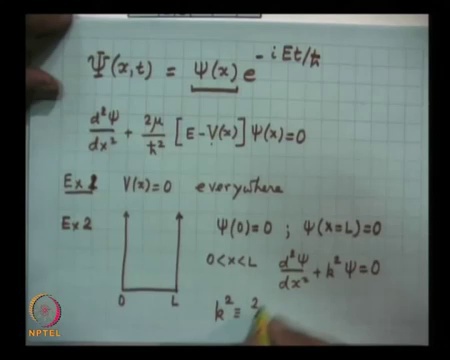 Ψ(x,t) = ψ(x) e^{-iEt/ħ}
d²ψ/dx² + 2μ/ħ² [E-V(x)] ψ(x)=0
Ex 1 V(x)=0 everywhere
Ex 2 ψ(0)=0 ; ψ(x=L)=0
0<x<L d²ψ/dx² + k²ψ=0
0 L
k² ≡ 2
NPTEL